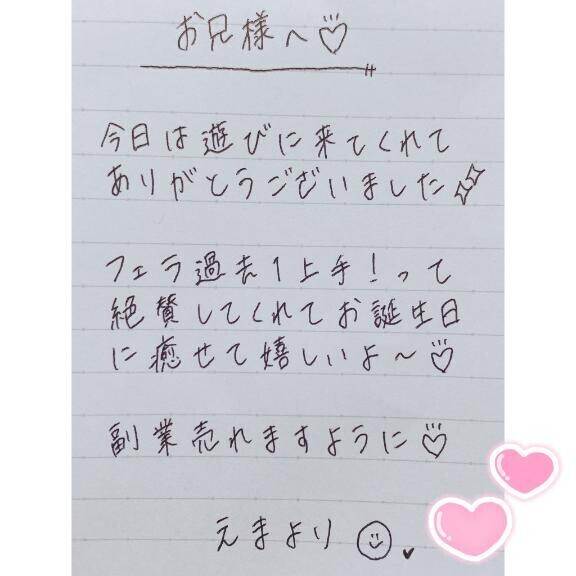 お兄様へ♡
今日は遊びに来てくれて
ありがとうございました
フェラ過去1上手！って
絶賛してくれてお誕生日
に癒せて嬉しいよ〜♡
副業売れますように♡
えまより